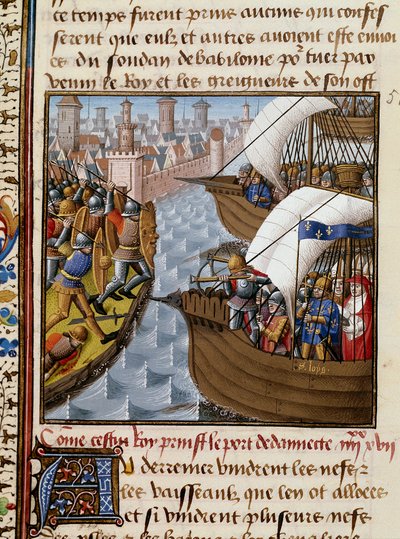 ce temps furent prins aucuns qui confes
serent que eulz et autres auoient este enuoi
es du soudan de babilonne po² tuer par
venin le Roy et les greigneurs de son ost
s. loys
Cõme cestui Roy prinst le port de damiecte. iiij xx vij
A u derrenier vindrent les nefz
les vaisseaulz que len ot alloees
et si vindrent pluseurs nefs